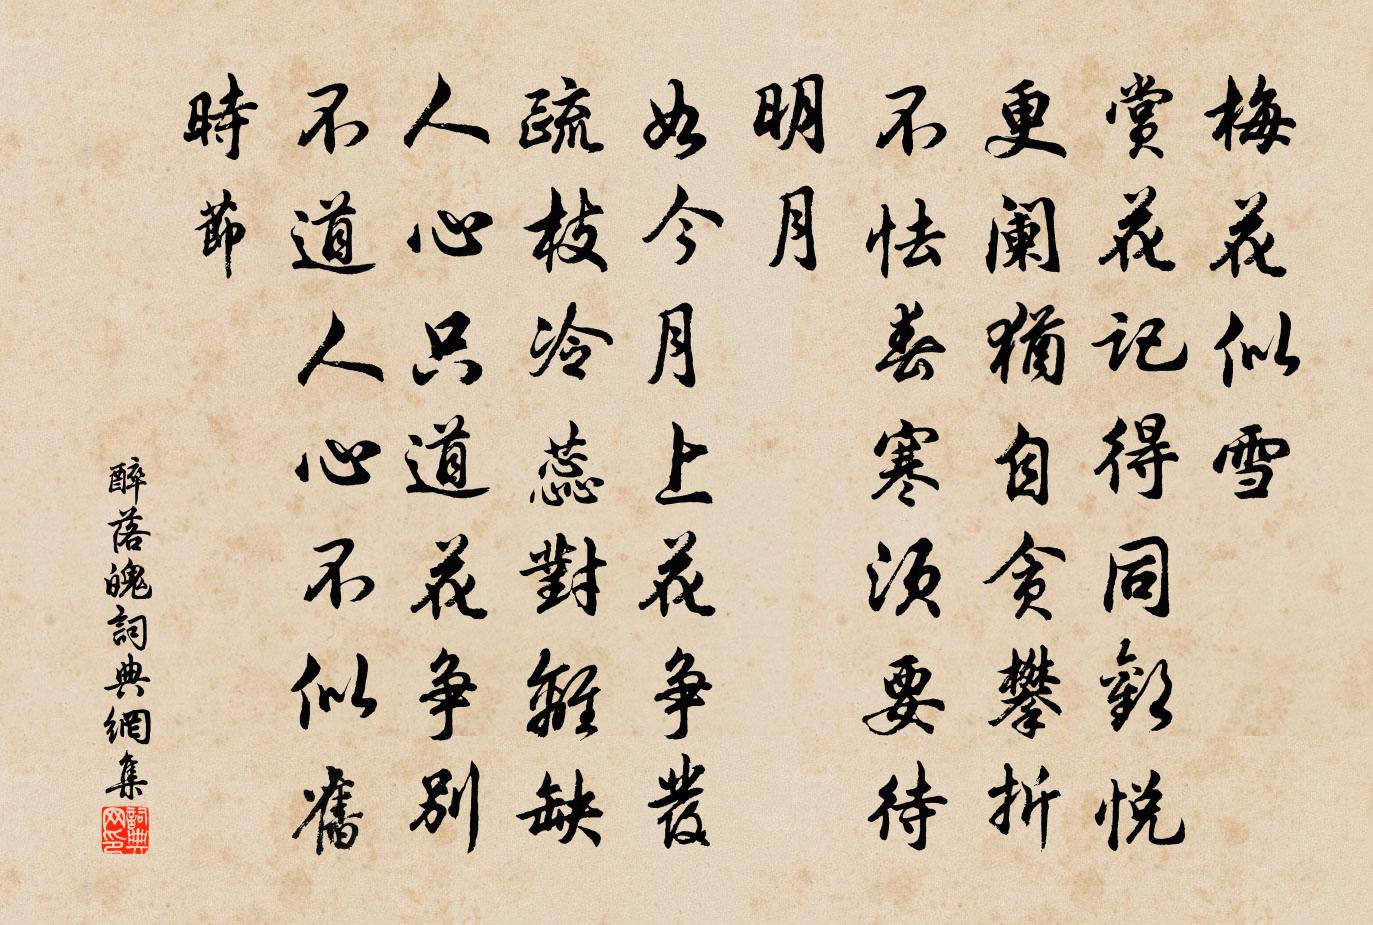 梅花似雪
賞花記得同歡悅
更闌猶自貪攀折
不怯春寒須要待
明月
如今月上花爭發
疏枝冷蕊對籬缺
人心只道花爭別
不道人心不似舊
時節
醉落魄詞典網集
詞典网印